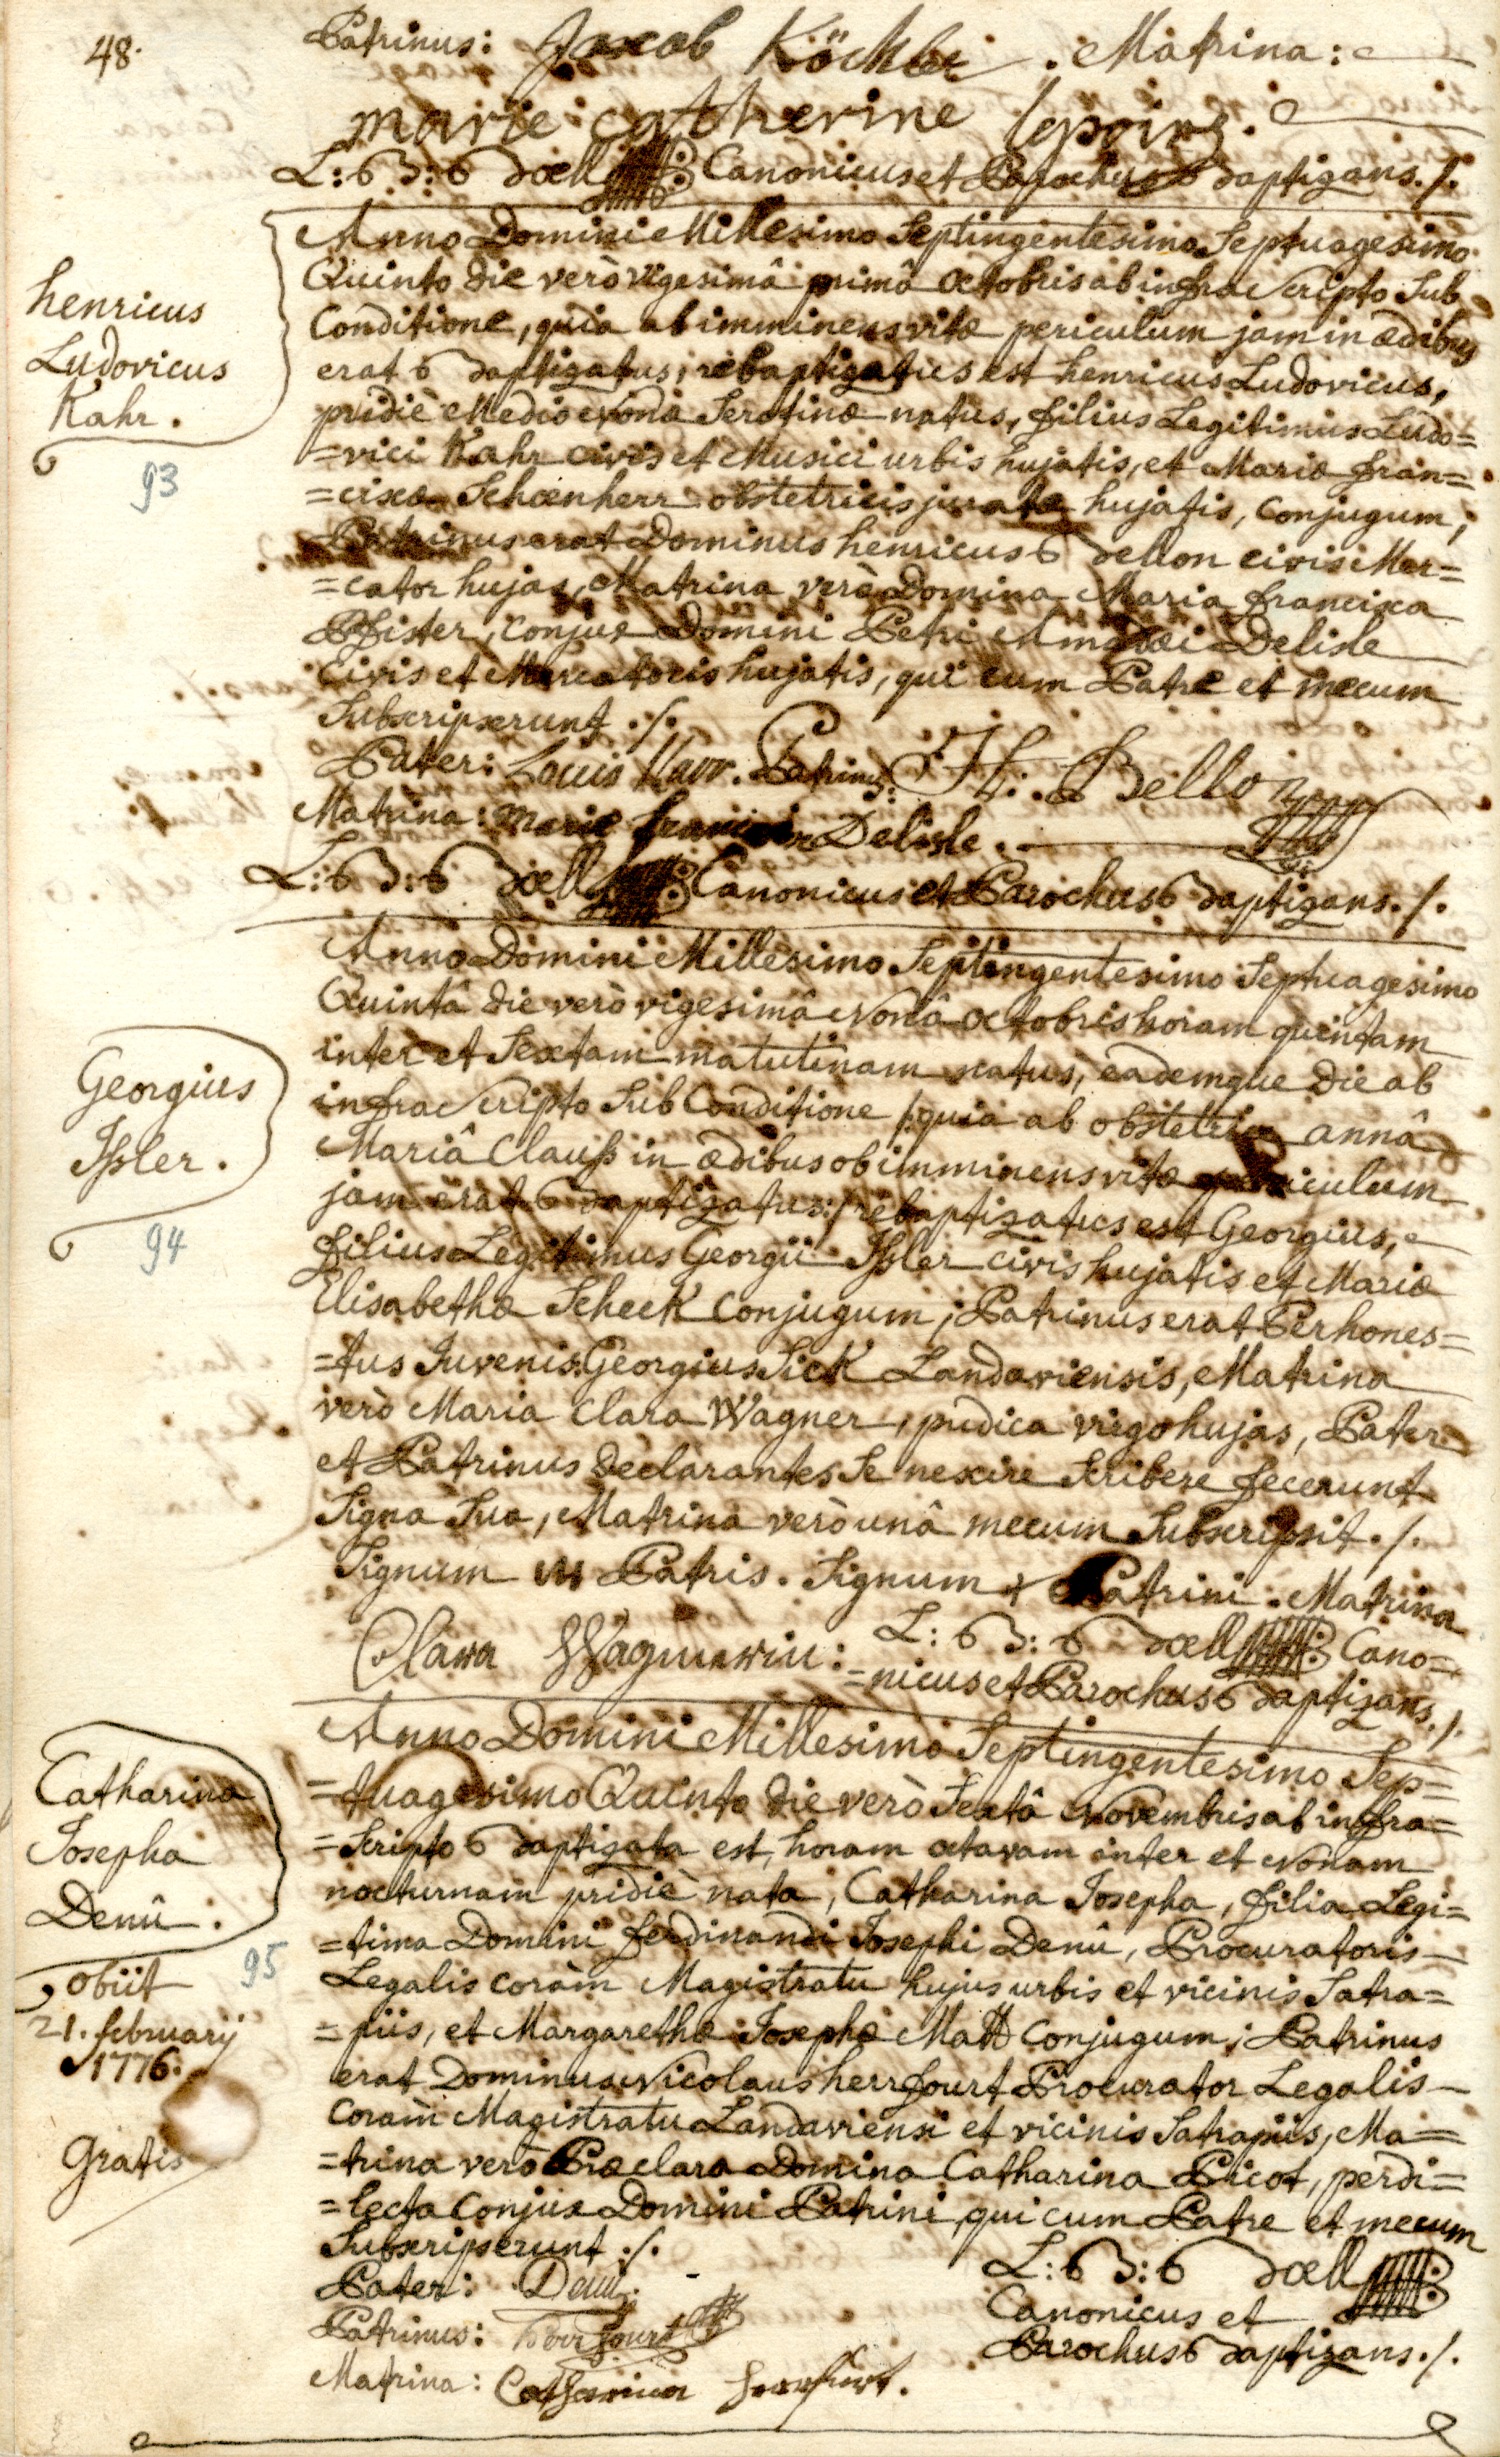 48.
Patrinus: Jacob Köchler. Matrina:
marie catherine lepoing.
L: B: Boell Canonicus et Parochus Baptizans./.
henricus
Ludovicus
Kahr.
93
Anno Domini Millesimo Septingentesimo Septuagesimo
Quinto die verò vigesimâ primâ octobris ab infra Scripto Sub
Conditione, quia ab imminens vitæ periculum jam in ædibus
erat Baptizatus, rebaptizatus est henricus Ludovicus,
pridiè Mediâ Nonâ Serotinâ natus, filius Legitimus Ludo=
=vici Kahr civis et Musici urbis hujatis, et Mariæ fran=
=ciscæ Schœnherr obstetricis juratæ hujatis, Conjugum;
Patrinus erat Dominus henricus Bellon civis Mer=
=cator hujas, Matrina verò Domina Maria francisca
Pfister, conjux Domini Petri Amadæi Delisle
Civis et Mercatoris hujatis, qui cum Patre et mecum
Subscripserunt ./.
Pater: Louis Karr. Patrinus: H: Bellon
Matrina: Marie Delisle.
L: B: Boell Canonicus et Parochus Baptizans./.
Georgius
Issler.
94
Anno Domini Millesimo Septingentesimo Septuagesimo
Quintâ die verò vigesimâ Nonâ octobris horam quintam
inter et Sextam matutinam natus, eademque die ab
infra Scripto Sub Conditione /:quia ab obstetrice annâ
Mariâ Clauß in ædibus ob imminens vitæ periculum
jam erat Baptizatus:/ rebaptizatus est Georgius,
filius Legitimus Georgii Issler civis hujatis et Mariæ
Elisabethæ Scheck Conjugum; Patrinus erat Perhones=
=tus Iuvenis Georgius Sick Landaviensis, Matrina
verò Maria Clara Wagner, pudica virgo hujas, Pater
et Patrinus declarantes Se nescire Scribere fecerunt
Signa Sua, Matrina verò unâ mecum Subscripsit ./.
Signum m Patris. Signum + Patrini. Matrina
Clara Wagnerin: L: B: Boell Cano=
=nicus et Parochus Baptizans./.
Catharina
Josepha
Denû.
95
obiit
21. february
1776.
Gratis
Anno Domini Millesimo Septingentesimo Sep=
=tuagesimo Quinto die verò Sextâ Novembris ab infra=
=Scripto Baptizata est, horam octavam inter et Nonam
nocturnam pridiè nata, Catharina Josepha, filia Legi=
=tima Domini Ferdinandi Josephi Denû, Procuratoris
Legalis coràm Magistratu hujus urbis et vicinis Satra=
=piis, et Margarethæ Josephæ Matt Conjugum; Patrinus
erat Dominus Nicolaus herrfourt Procurator Legalis
Coràm Magistratu Landaviensi et vicinis Satrapiis, Ma=
=trina verò Præclara Domina Catharina Picot, perdi=
=lecta Conjux Domini Patrini, qui cum Patre et mecum
Subscripserunt ./.
Pater: Denû.
Patrinus: herrfourt
Matrina: Catharina
L: B: Boell
Canonicus et
Parochus Baptizans./.